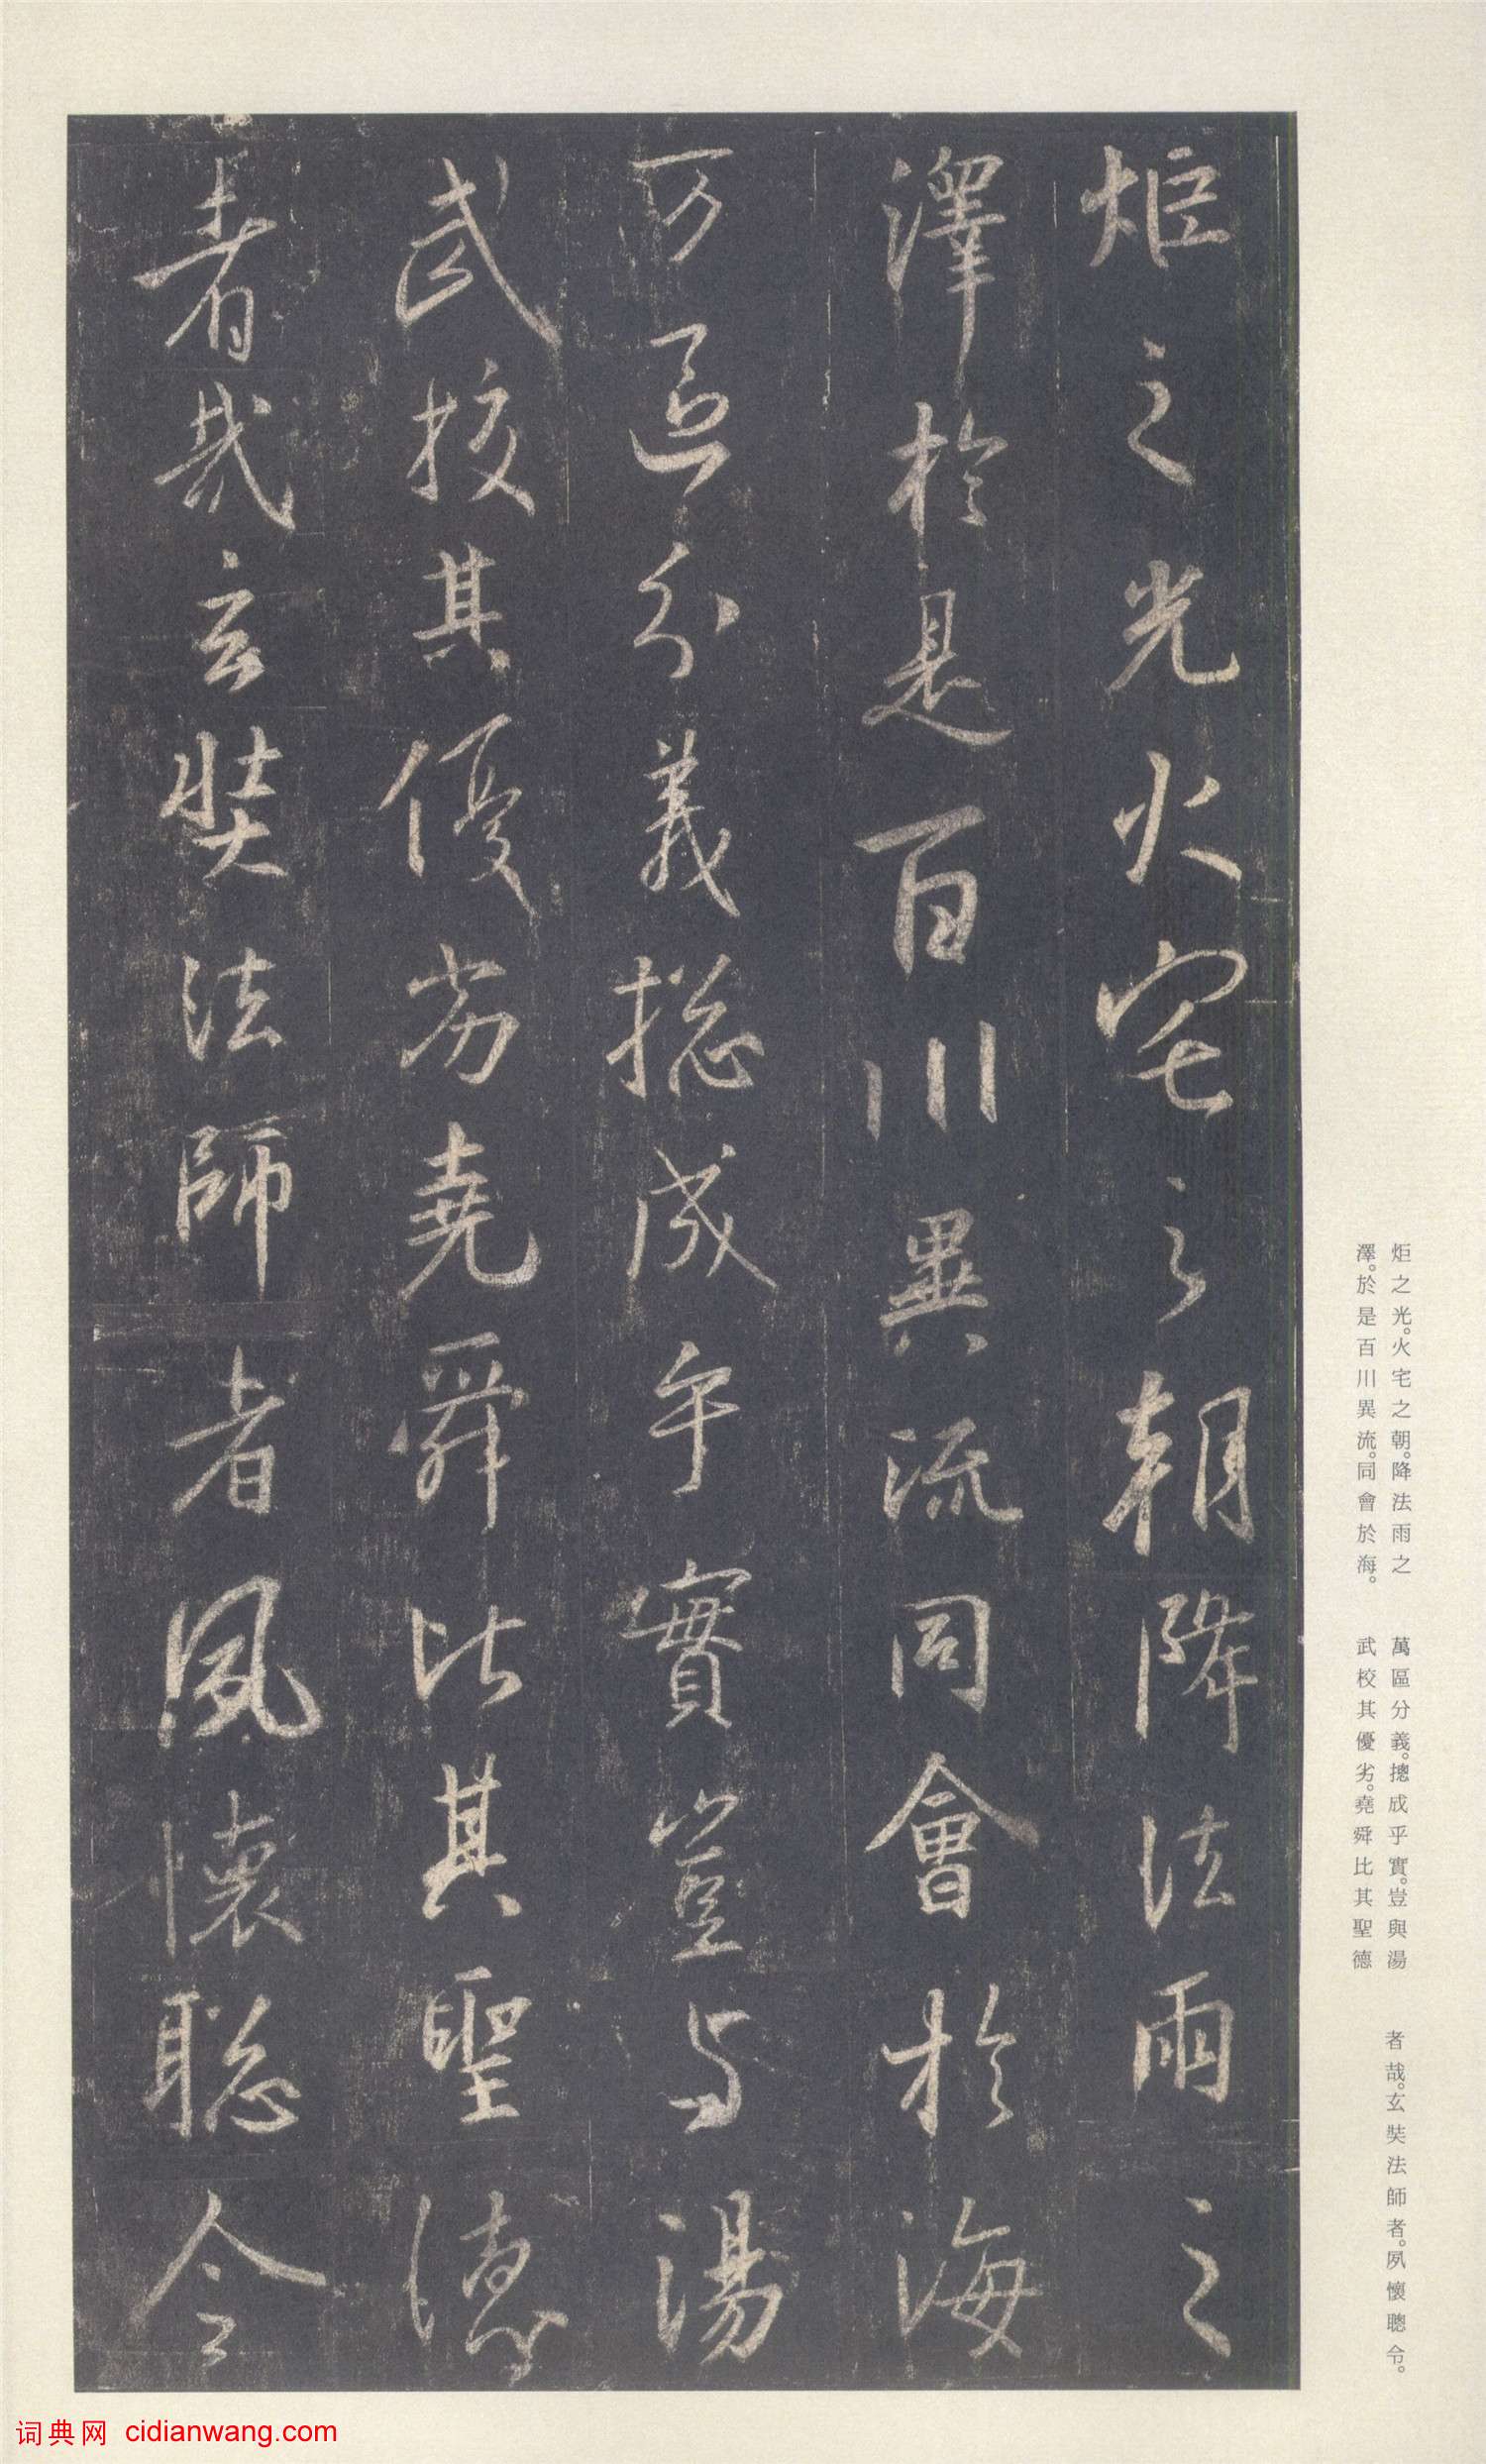 炬之光火宅之朝降法雨之
澤於是百川異流同會於海
万區分義揔成乎實豈与湯
武校其優劣堯舜比其聖德
者哉玄奘法師者夙懷聰令
炬之光。火宅之朝。降法雨之
澤。於是百川異流。同會於海。
萬區分義。摠成乎實。豈與湯
武校其優劣。堯舜比其聖德
者哉。玄奘法師者。夙懷聰令。
词典网 cidianwang.com